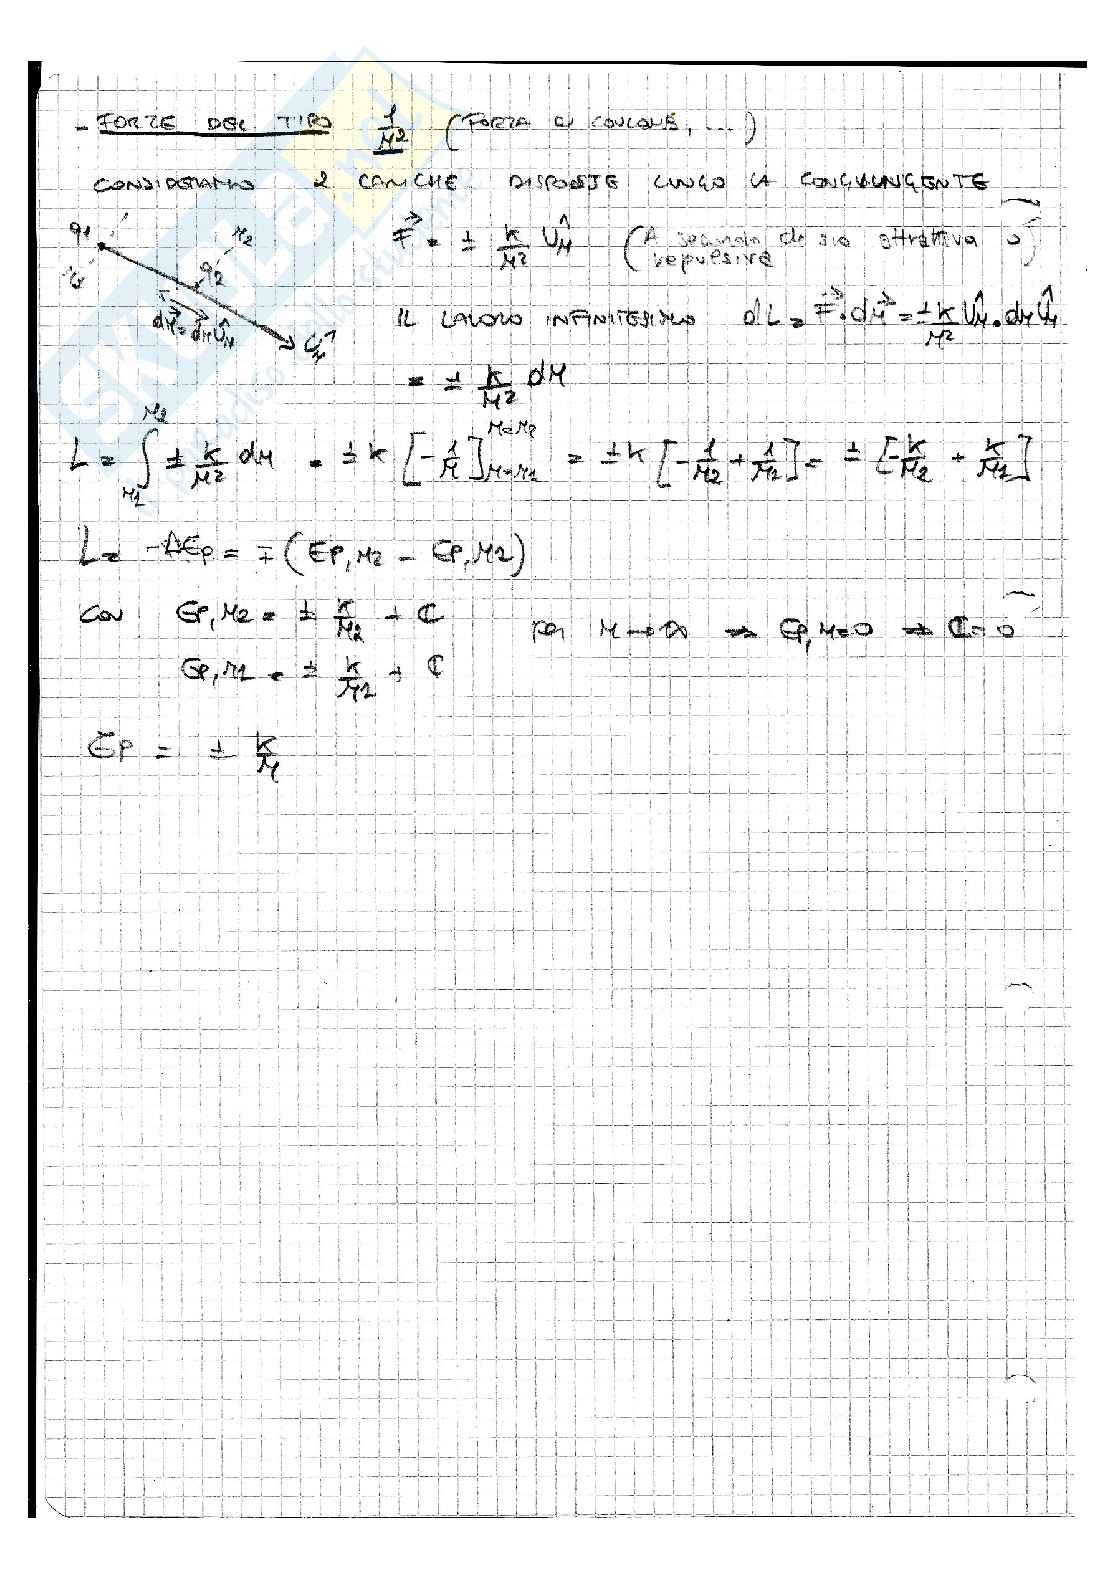 - FORZE DEL TIPO 1/r² (FORZA DI COULOMB, ...)
CONSIDERIAMO 2 CARICHE DISPOSTE LUNGO LA CONGIUNGENTE
q1 r2 q2
F⃗ = ± k/r² Ûr (A seconda che sia attrattiva o repulsiva)
dr⃗ = dr Ûr
Ûr
IL LAVORO INFINITESIMO dL = F⃗ · dr⃗ = ± k/r² Ûr · dr Ûr
= ± k/r² dr
L = ∫_{r1}^{r2} ± k/r² dr = ± k [-1/r]_{r=r1}^{r=r2} = ± k [-1/r2 + 1/r1] = ± [-k/r2 + k/r1]
L = -ΔEp = ∓ (Ep,r2 - Ep,r1)
CON Ep,r2 = ± k/r2 + C
per r → ∞ ⇒ Ep,r=0 ⇒ C = 0
Ep,r1 = ± k/r1 + C
Ep = ± k/r